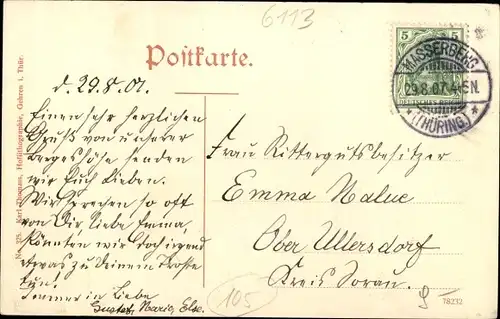 6113
Postkarte.
5 5
DEUTSCHES REICH
MASSERBERG
29.8.07.4-5N.
* (THÜRING.) *
d. 29.8.07.
Einen sehr herzlichen
Gruß von unserer
Bergeshöhe senden
wir Euch Lieben.
Wir sprechen so oft
von Dir, liebe Emma,
könnten wir doch irgend
etwas zu Deinem Troste
tun!
Immer in Liebe
Gustav, Marie, Else.
Frau Rittergutsbesitzer
Emma Nalue
Ober Ullersdorf
Kreis Sorau.
105
78232
No. 325. Karl Thomas, Hoflithographie, Gehren i. Thür.